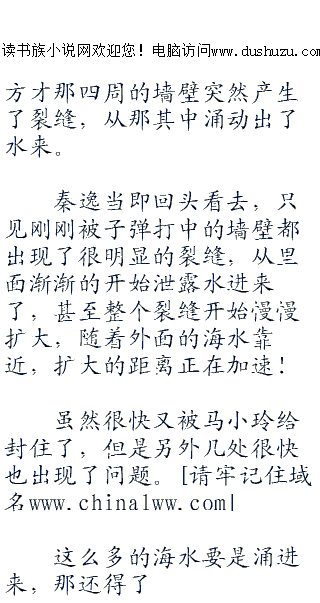 读书族小说网欢迎您！电脑访问www.dushuzu.com
方才那四周的墙壁突然产生
了裂缝，从那其中涌动出了
水来。
秦逸当即回头看去，只
见刚刚被子弹打中的墙壁都
出现了很明显的裂缝，从里
面渐渐的开始泄露水进来
了，甚至整个裂缝开始慢慢
扩大，随着外面的海水靠
近，扩大的距离正在加速！
虽然很快又被马小玲给
封住了，但是另外几处很快
也出现了问题。[请牢记住域
名www.china1ww.com|
这么多的海水要是涌进
来，那还得了